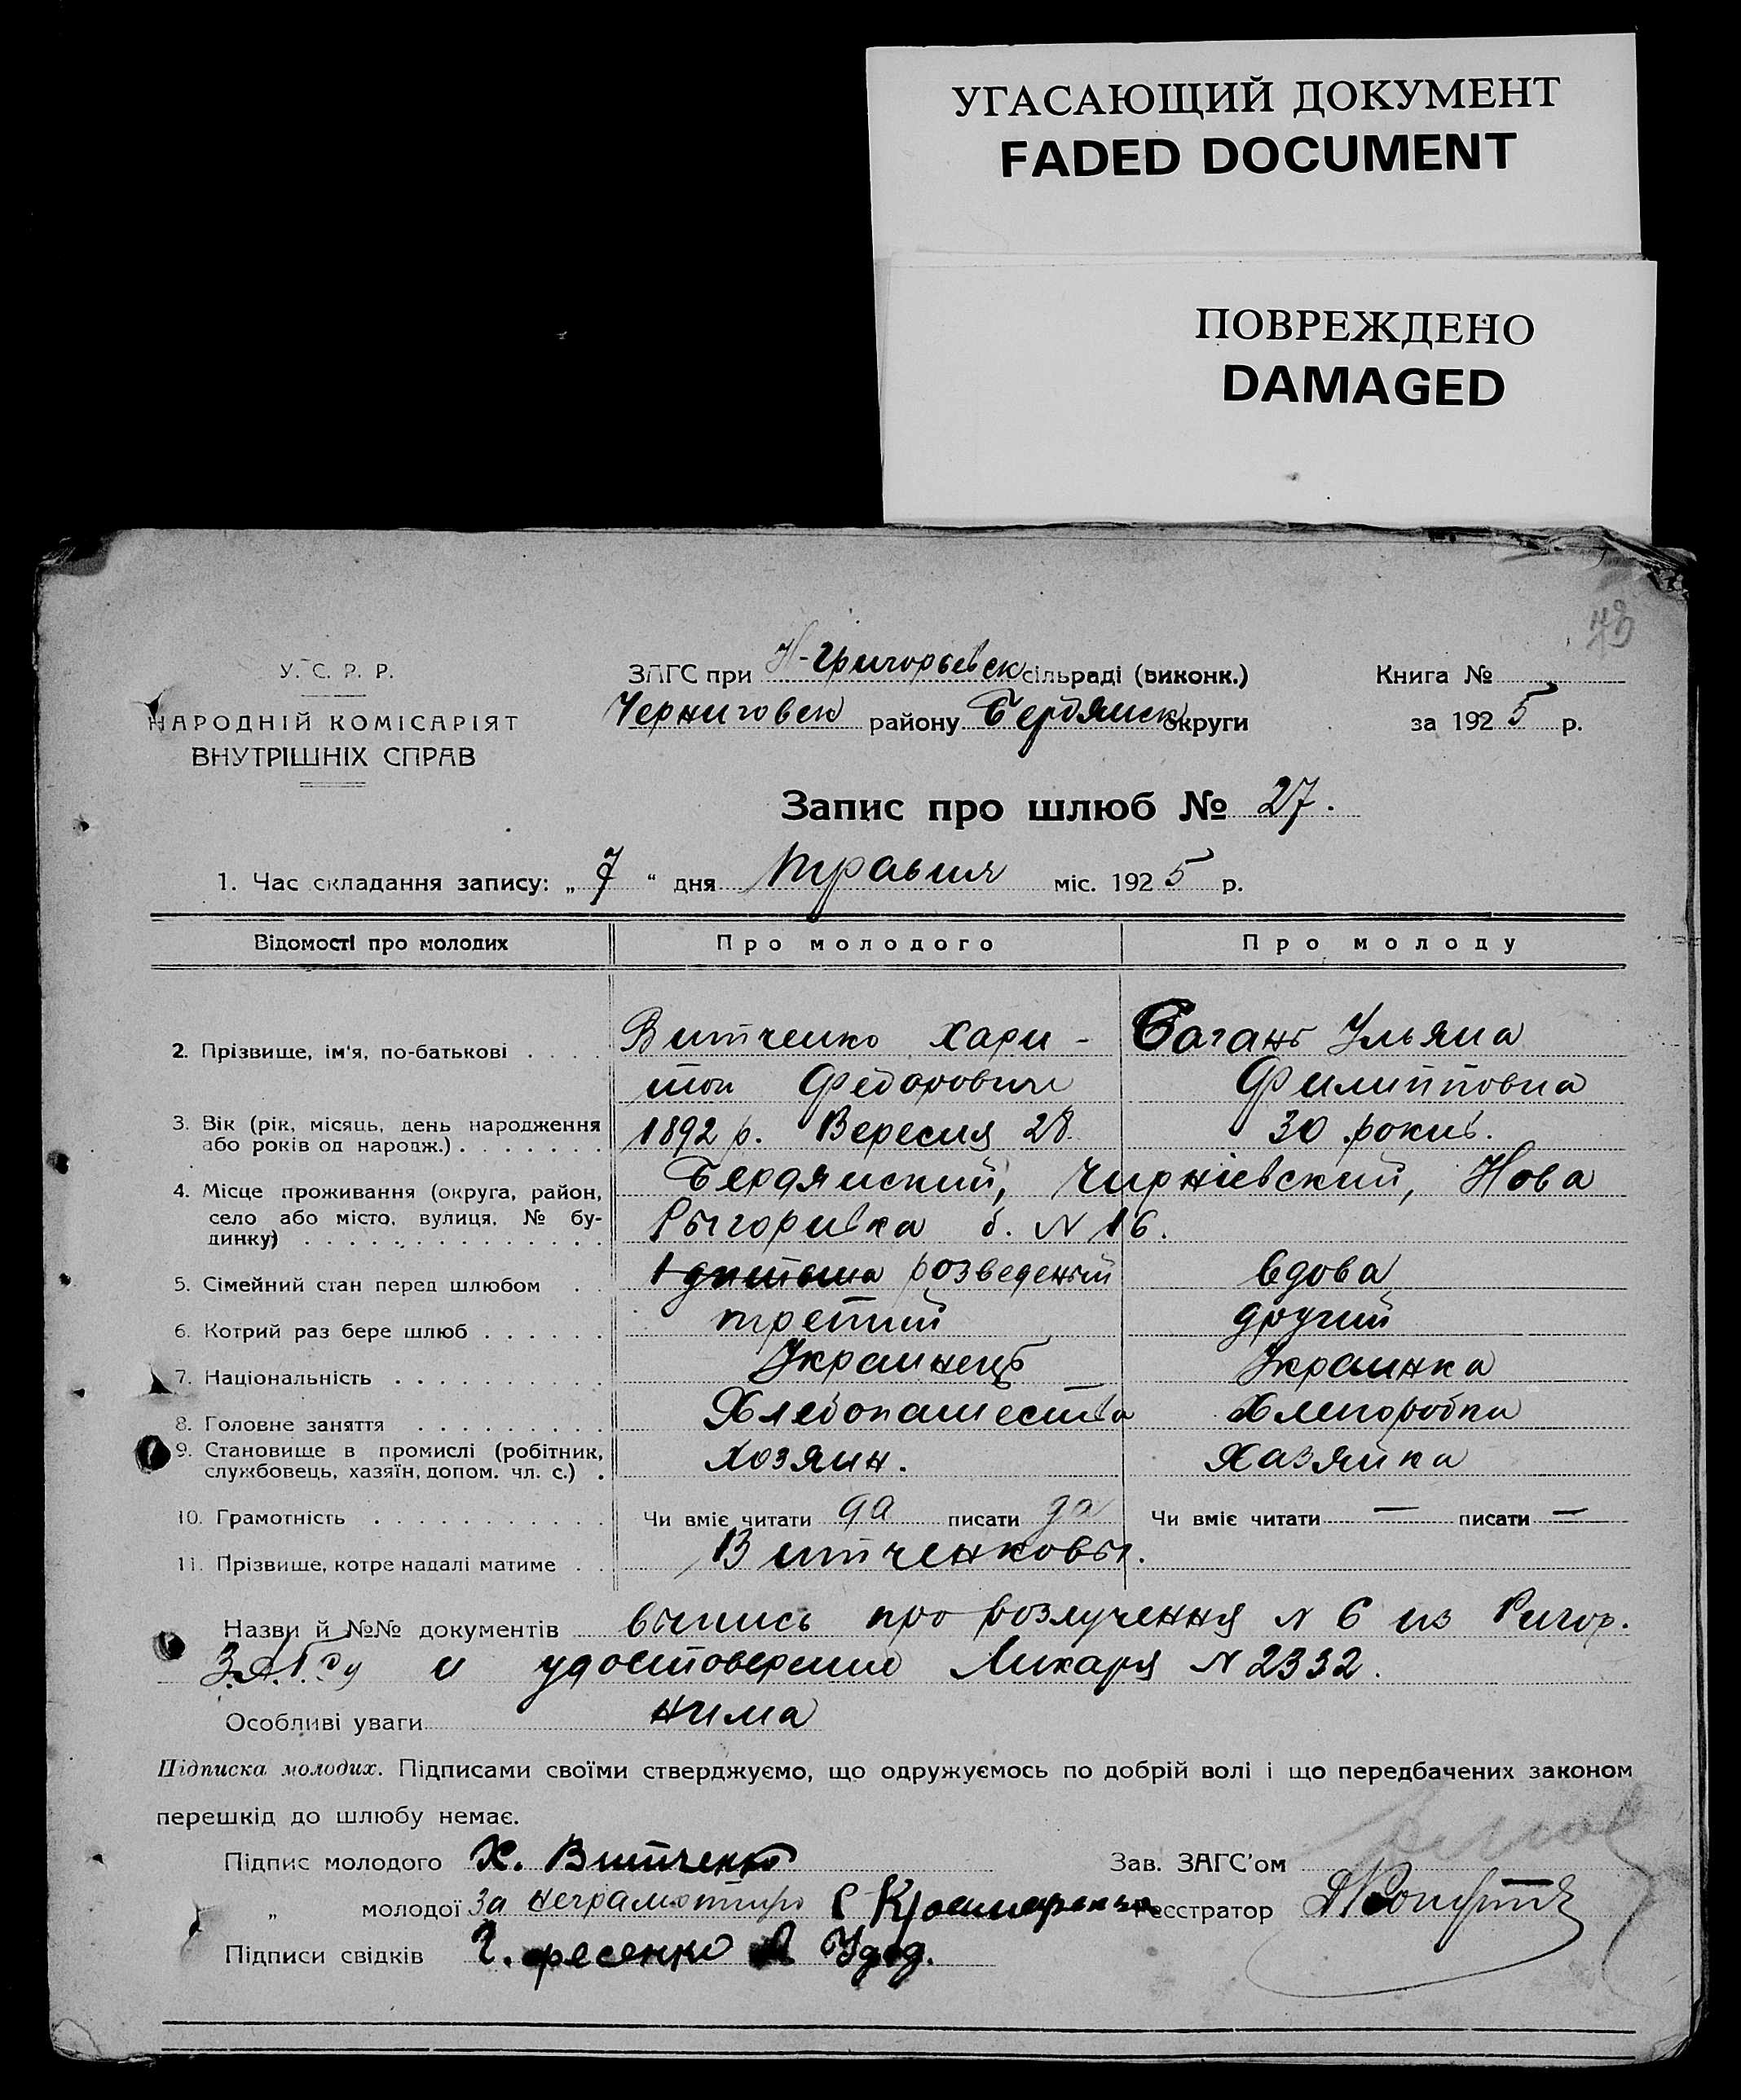 УГАСАЮЩИЙ ДОКУМЕНТ
FADED DOCUMENT
ПОВРЕЖДЕНО
DAMAGED
У. С. Р. Р.
НАРОДНІЙ КОМІСАРІЯТ
ВНУТРІШНІХ СПРАВ
ЗАГС при Н-Григорьевск сільраді (виконк.)
Черниговск району Бердянск округи
Книга №
за 1925 р.
Запис про шлюб № 27.
1. Час складання запису: „ 7 “ дня травня міс. 1925 р.
Відомості про молодих Про молодого Про молоду
2. Прізвище, ім'я, по-батькові Витченко Хари- Багань Ульяна
тон Федорович Филипповна
3. Вік (рік, місяць, день народження або років од народж.) 1892 р. Вересня 28. 30 рокив.
4. Місце проживання (округа, район, Бердянский, Чирнієвский, Нова
село або місто, вулиця, № будинку) Рыгоривка б. N 16.
5. Сімейний стан перед шлюбом розведеный вдова
6. Котрий раз бере шлюб третий другий
7. Національність Украинець Украинка
8. Головне заняття Хлебопашества Хлиборобка
9. Становище в промислі (робітник, службовець, хазяїн, допом. чл. с.) хозяин. Хазяйка
10. Грамотність Чи вміє читати да писати да Чи вміє читати — писати —
11. Прізвище, котре надалі матиме Витченковы.
Назви й №№ документів выпись про розлучення N 6 из Ригор.
З.А.Г.Су и удостоверение Ликаря N 2332.
Особливі уваги нима
Підписка молодих. Підписами своїми стверджуємо, що одружуємось по добрій волі і що передбачених законом
перешкід до шлюбу немає.
Підпис молодого Х. Витченко Зав. ЗАГС'ом
„ молодої За неграмотну Реєстратор
Підписи свідків Удод.